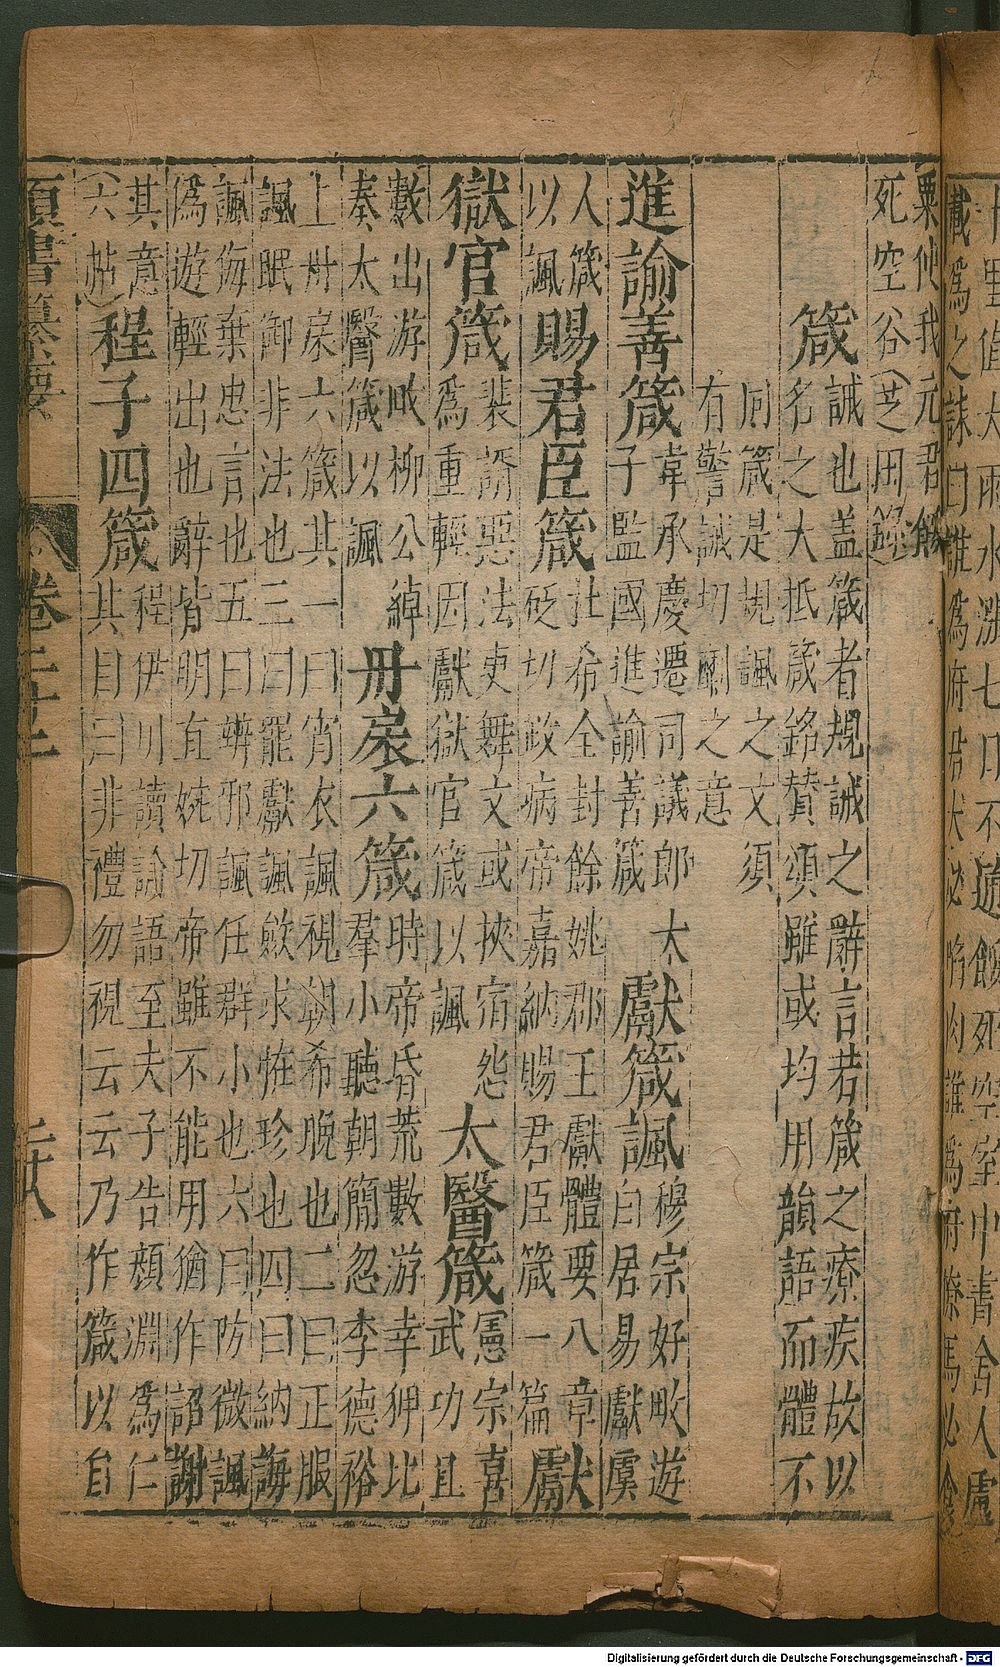 粟使我元君餓
死空谷(芝田錄)
箴
誠也盖箴者規誠之辭言若箴之療疾故以
名之大抵箴銘賛頌雖或均用韻語而體不
同箴是規諷之文須
有警誠切劘之意
進諭善箴
韋承慶遷司議郎太
子監國進諭善箴
獻箴諷
穆宗好畋遊
白居易獻虞
人箴
以諷
賜君臣箴
杜希全封餘姚郡王獻體要八章
砭切政病帝嘉納賜君臣箴一篇
獻
獄官箴
裴諝惡法吏舞文或挾宿怨
爲重輕因獻獄官箴以諷
太醫箴
憲宗喜
武功且
數出游畋柳公綽
奏太醫箴以諷
丹扆六箴
時帝昏荒數游幸狎比
羣小聽朝簡忽李德裕
上丹扆六箴其一曰宵衣諷視朝希晚也二曰正服
諷服御非法也三曰罷獻諷斂求怪珍也四曰納誨
諷侮棄忠言也五曰辨邪諷任群小也六曰防微諷
爲遊輕出也辭皆明直婉切帝雖不能用猶作詔謝
其意
(六帖)
程子四箴
程伊川讀論語至夫子告顏淵爲仁
其目曰非禮勿視云云乃作箴以自
卷二十二
二十八
Digitalisierung gefördert durch die Deutsche Forschungsgemeinschaft - DFG